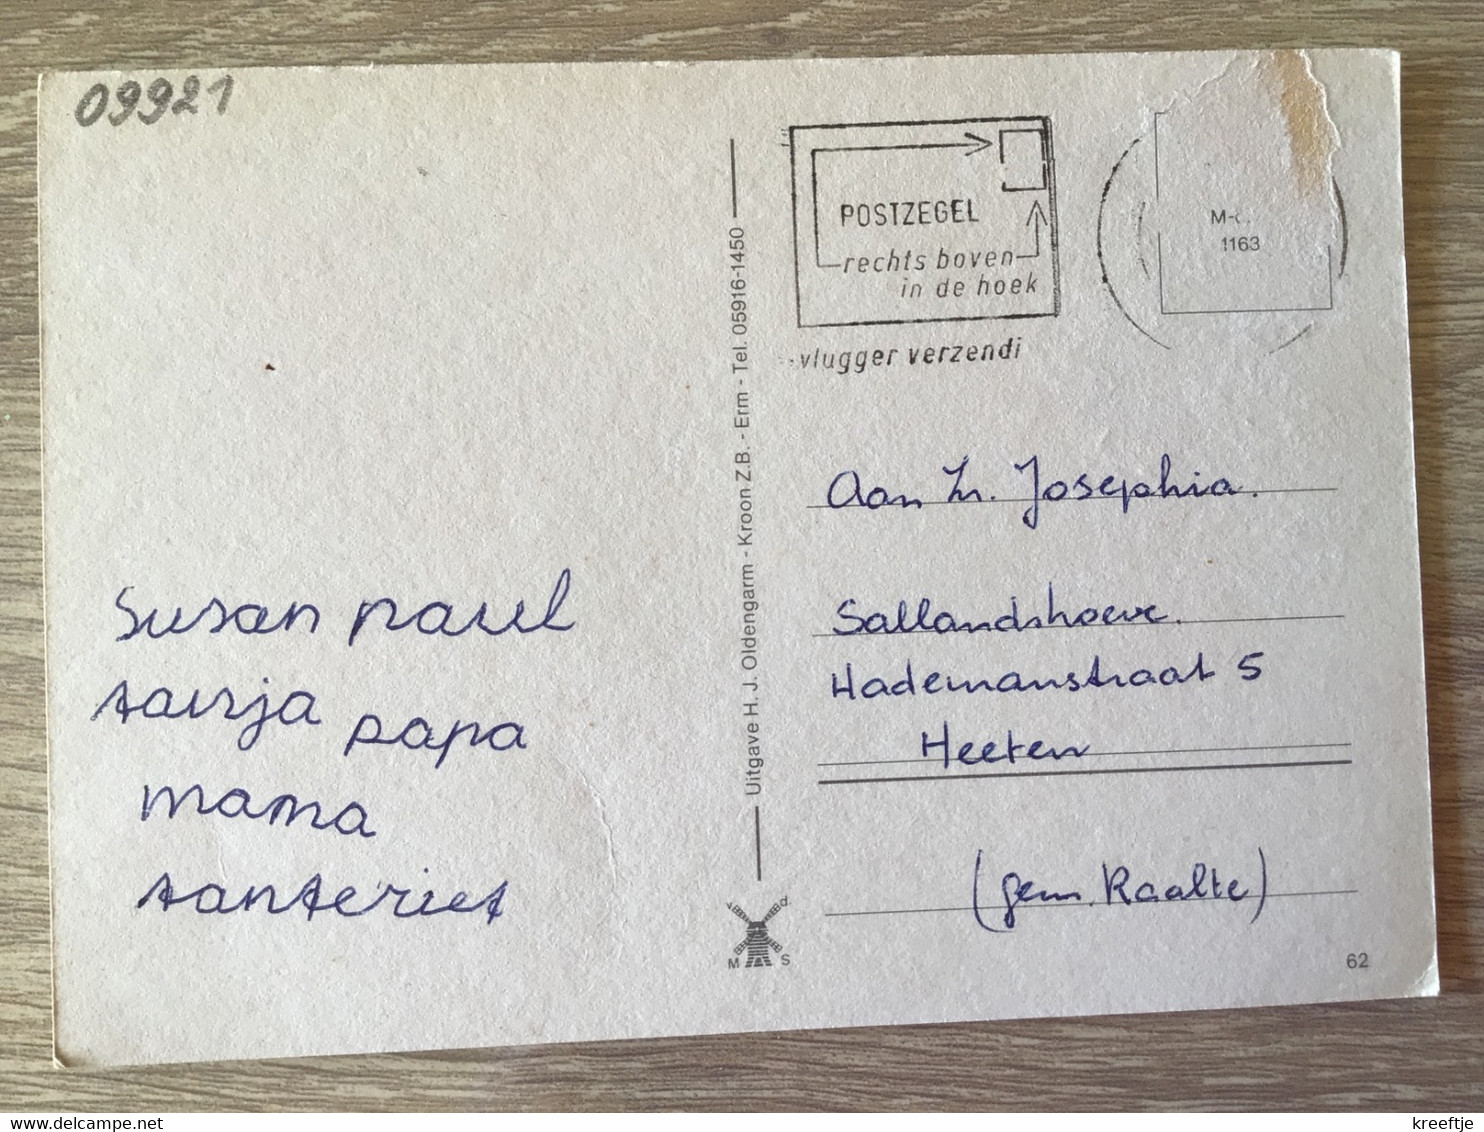 09921
POSTZEGEL
rechts boven
in de hoek
vlugger verzendi
1163
Susan paul
tanja papa
mama
tanteriet
Uitgave H. J. Oldengarm - Kroon Z.B. - Erm - Tel. 05916-1450
v d
M S
Aan Zr. Josephia.
Sallandshoeve.
Hademanstraat 5
Heeten
(gem. Raalte)
62
kreeftje